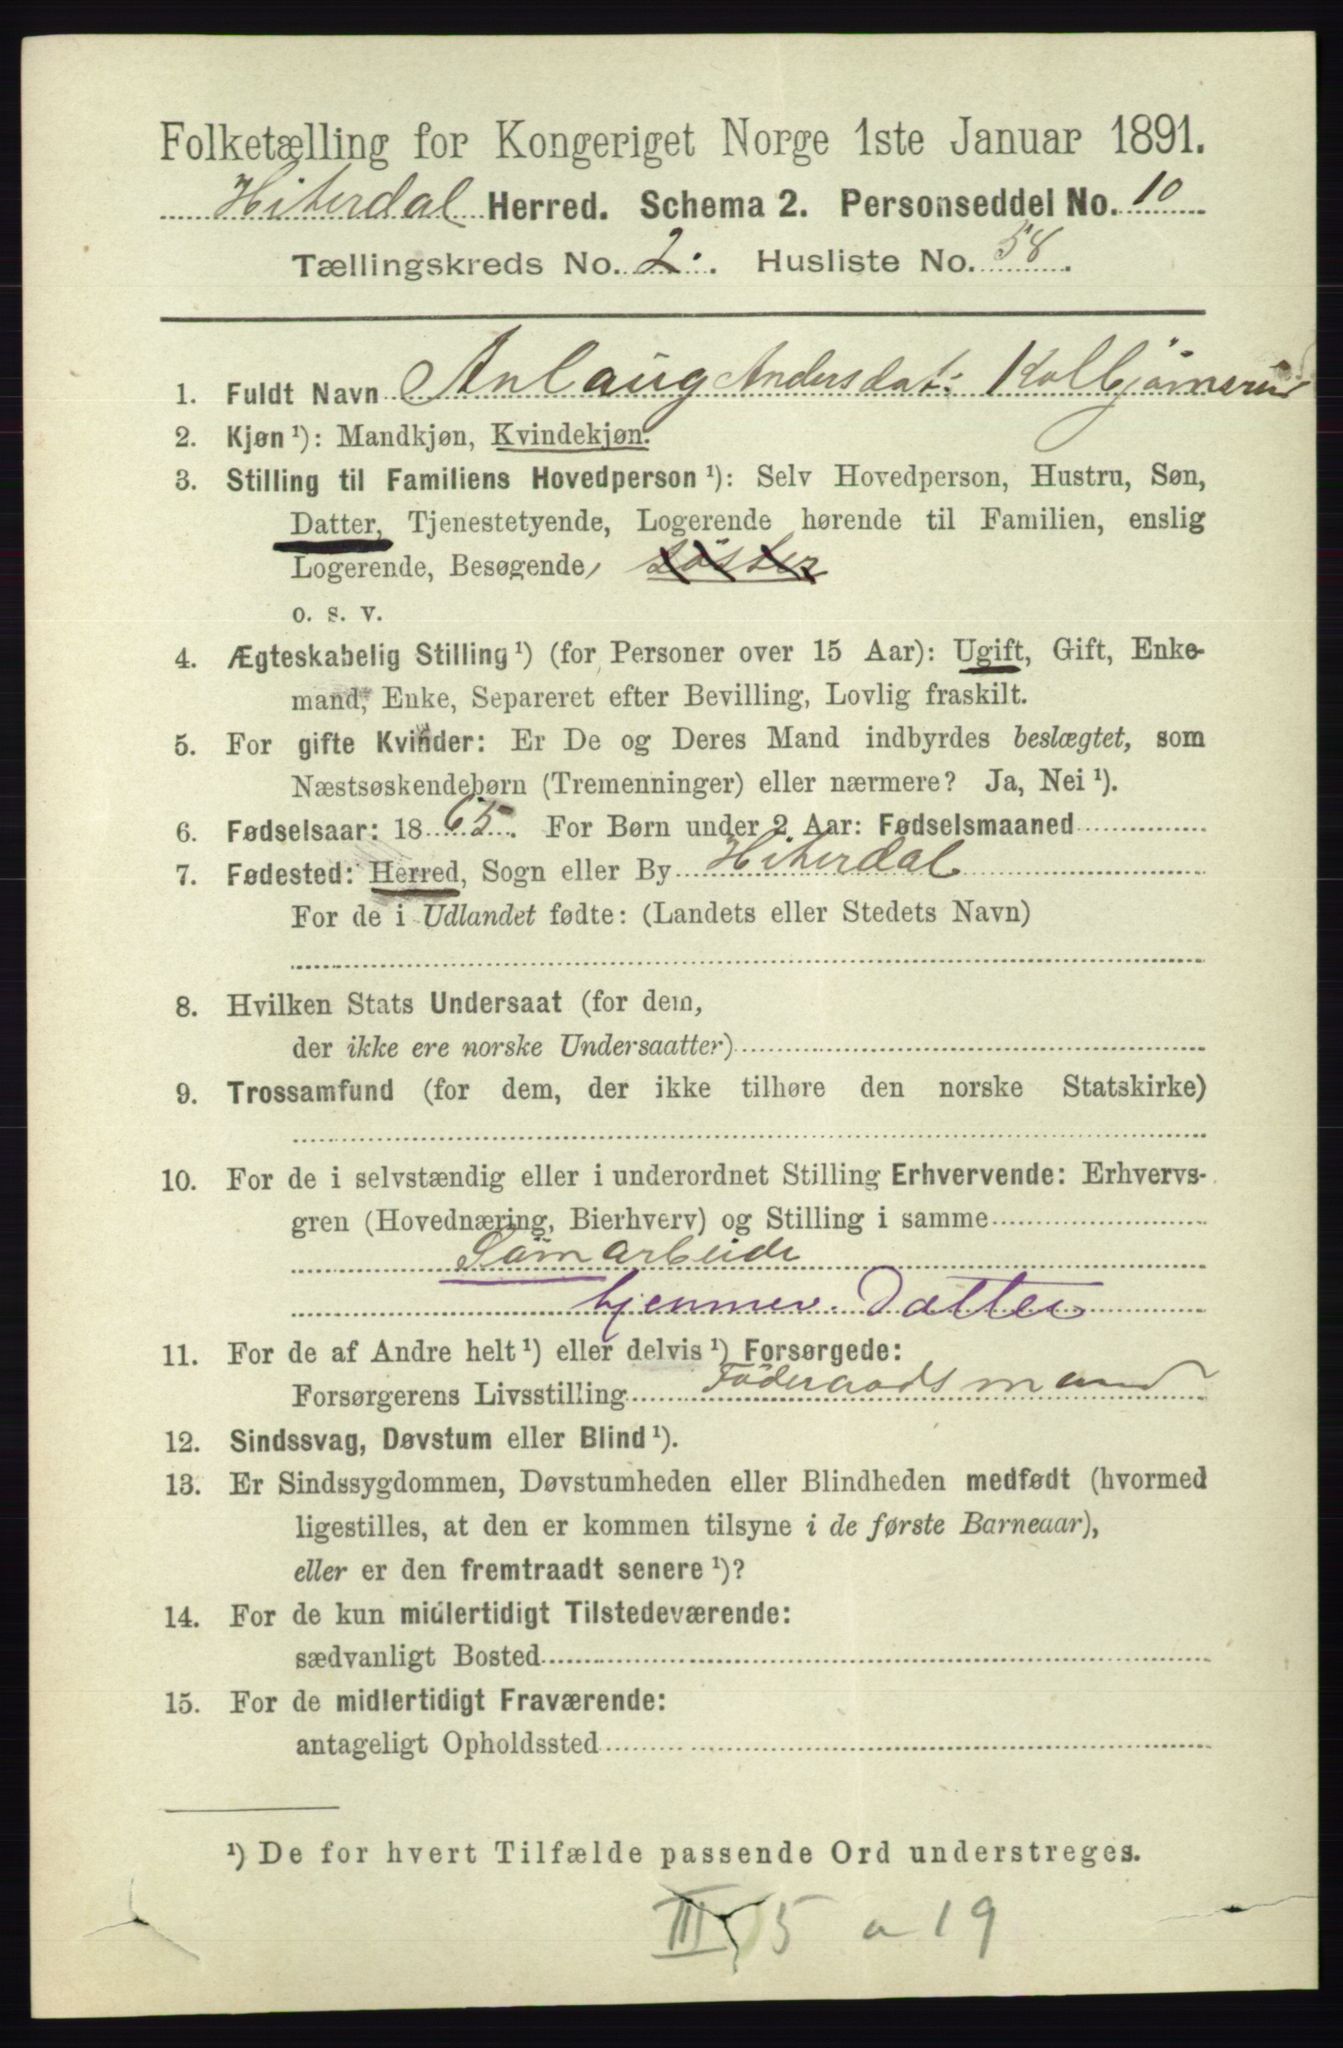 Folketælling for Kongeriget Norge 1ste Januar 1891.
Hiterdal Herred. Schema 2. Personseddel No. 10
Tællingskreds No. 2. Husliste No. 58.
1. Fuldt Navn Anlaug Andersdat: Kolbjørnsrud
2. Kjøn ¹): Mandkjøn, Kvindekjøn.
3. Stilling til Familiens Hovedperson ¹): Selv Hovedperson, Hustru, Søn,
Datter, Tjenestetyende, Logerende hørende til Familien, enslig
Logerende, Besøgende, söster
o. s. v.
4. Ægteskabelig Stilling ¹) (for Personer over 15 Aar): Ugift, Gift, Enke-
mand, Enke, Separeret efter Bevilling, Lovlig fraskilt.
5. For gifte Kvinder: Er De og Deres Mand indbyrdes beslægtet, som
Næstsøskendebørn (Tremenninger) eller nærmere? Ja, Nei ¹).
6. Fødselsaar: 1865. For Børn under 2 Aar: Fødselsmaaned
7. Fødested: Herred, Sogn eller By Hiterdal
For de i Udlandet fødte: (Landets eller Stedets Navn)
8. Hvilken Stats Undersaat (for dem,
der ikke ere norske Undersaatter)
9. Trossamfund (for dem, der ikke tilhøre den norske Statskirke)
10. For de i selvstændig eller i underordnet Stilling Erhvervende: Erhvervs-
gren (Hovednæring, Bierhverv) og Stilling i samme
Sömarbeide
hjemmev. Datter
11. For de af Andre helt ¹) eller delvis ¹) Forsørgede:
Forsørgerens Livsstilling Föderaadsmand
12. Sindssvag, Døvstum eller Blind ¹).
13. Er Sindssygdommen, Døvstumheden eller Blindheden medfødt (hvormed
ligestilles, at den er kommen tilsyne i de første Barneaar),
eller er den fremtraadt senere ¹)?
14. For de kun midlertidigt Tilstedeværende:
sædvanligt Bosted
15. For de midlertidigt Fraværende:
antageligt Opholdssted
¹) De for hvert Tilfælde passende Ord understreges.
III 5 a 19